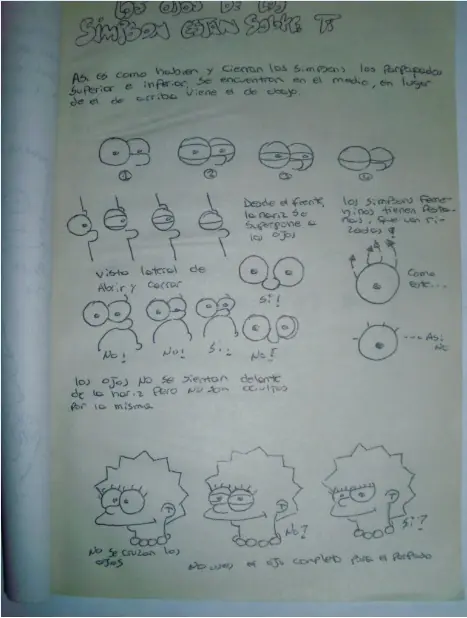 Los ojos De los
Simpson Están Sobre Ti
Asi es como habren y cierran los simpsons los Parpados
superior e inferior se encuentran en el medio, en lugar
de el de arriba viene el de abajo.
① ② ③ ④
Desde el frente,
la nariz se
superpone a
los ojos
los simpsons Feme-
ninos tienen Pesta-
ñas, que van ri-
zadas
vista lateral de
Abrir y cerrar
Si!
Como
este...
No! No! Si! No!
... Asi
No
los ojos No se sientan delante
de la nariz Pero No son
Por la misma
No se cruzan los
ojos
No?
Si?
No uses el ojo completo Para el Parpado